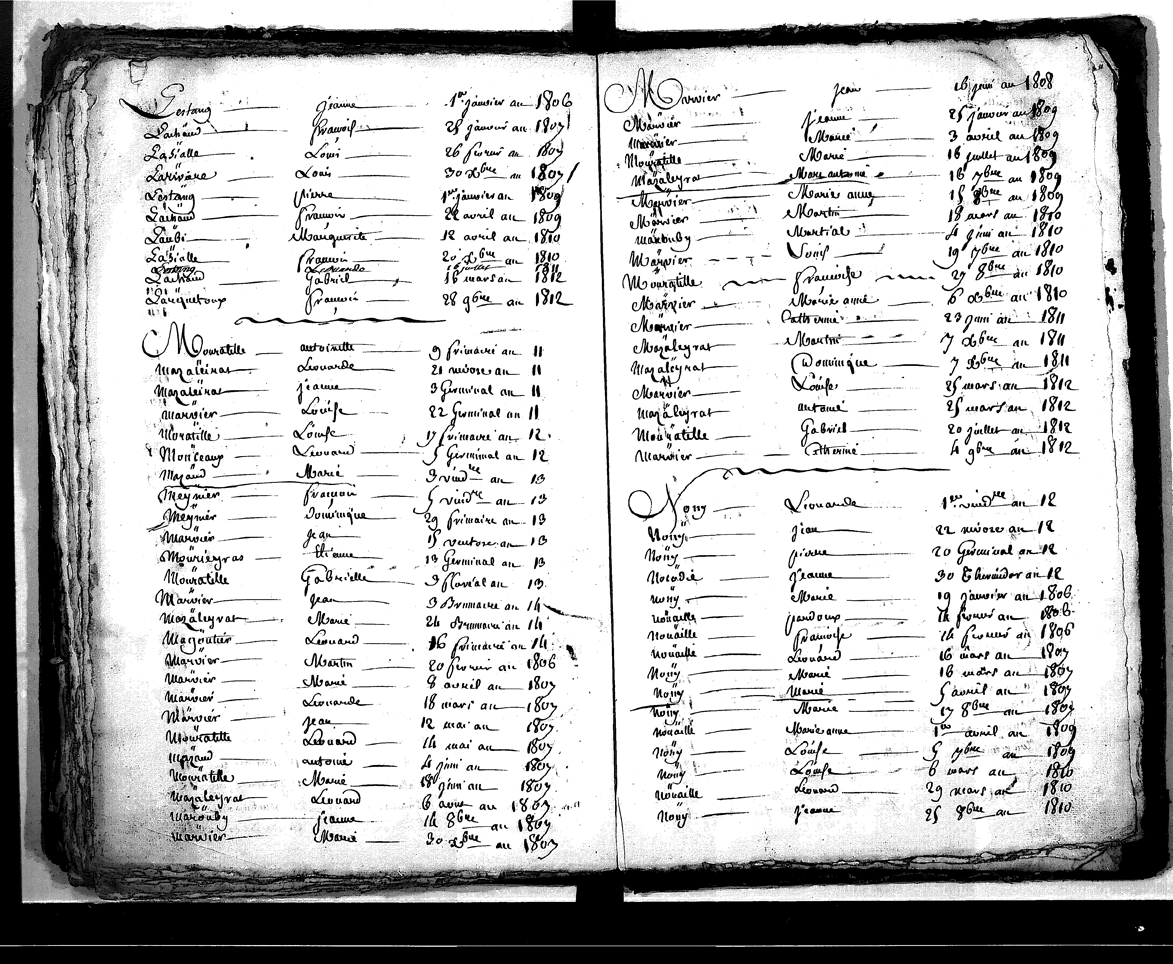 Lestang jeanne 1er janvier an 1806
Lachaud françois 25 janvier an 1807
Lasialle Louis 26 fevrier an 1807
Lariviere Louis 30 Xbre an 1807
Lestang pierre 1er janvier an 1809
Lachaud françois 22 avril an 1809
Laubi Marguerite 12 avril an 1810
Lasialle françois 20 Xbre an 1810
Lestang Leonarde juillet 1811
Lachaud Gabriel 16 mars an 1812
Larquetoux françois 28 9bre an 1812
Mouratille antoinette 9 frimaire an 11
Mazaleirat Leonarde 21 nivose an 11
Mazaleirat jeanne 3 Germinal an 11
Marvier Louise 22 Germinal an 11
Moratille Louise 17 frimaire an 12
Monceaux Leonard 5 Germinal an 12
Mazaud Marie 3 vindre an 13
Meynier françois 5 vindre an 13
Meynier Dominique 29 frimaire an 13
Marvier Jean 15 ventose an 13
Mourieyras Etienne 13 Germinal an 13
Mouratille Gabrielle 3 floréal an 13
Marvier Jean 3 Brumaire an 14
Mazaleyrat Marie 24 Brumaire an 14
Magoutier Leonard 16 frimaire an 14
Marvier Martin 20 fevrier an 1806
Marvier Marie 8 avril an 1807
Marvier Leonarde 18 mars an 1807
Marvier Jean 12 mai an 1807
Mouratille Leonard 14 mai an 1807
Mazaud antoine 4 juin an 1807
Mouratille Marie 18 juin an 1807
Mazaleyrat Leonard 6 aout an 1807
Marouby jeanne 14 8bre an 1807
Marvier Marie 30 Xbre an 1807
Marvier jean 16 juin an 1808
Marvier jeanne 25 janvier an 1809
Marvier Marie 3 avril an 1809
Mouratille Marie 16 juillet an 1809
Mazaleyrat Marc antoine 16 7bre an 1809
Marvier Marie anne 15 8bre an 1809
Marvier Martin 18 mars an 1810
Marouby Martial 4 juin an 1810
Marvier Louis 19 7bre an 1810
Mouratille françoise 29 8bre an 1810
Marvier Marie anne 6 Xbre an 1810
Marvier Catherine 23 juin an 1811
Mazaleyrat Martin 7 Xbre an 1811
Mazaleyrat Dominique 7 Xbre an 1811
Marvier Louise 25 mars an 1812
Mazaleyrat antoine 25 mars an 1812
Mouratille Gabriel 20 juillet an 1812
Marvier Catherine 4 9bre an 1812
Nony Leonarde 1er vindre an 12
Nony jean 22 nivose an 12
Nony pierre 20 Germinal an 12
Nocadie jeanne 30 thermidor an 12
Nony Marie 19 janvier an 1806
Nouaille pardoux 14 fevrier an 1806
Nouaille françoise 14 fevrier an 1806
Nouaille Leonard 16 mars an 1807
Nony Marie 16 mars an 1807
Nony Marie 5 avril an 1807
Nony Marie 17 8bre an 1807
Nouaille Marie anne 1er avril an 1809
Nony Louise 5 7bre an 1809
Nony Louise 6 mars an 1810
Nouaille Leonard 29 mars an 1810
Nony jeanne 25 8bre an 1810